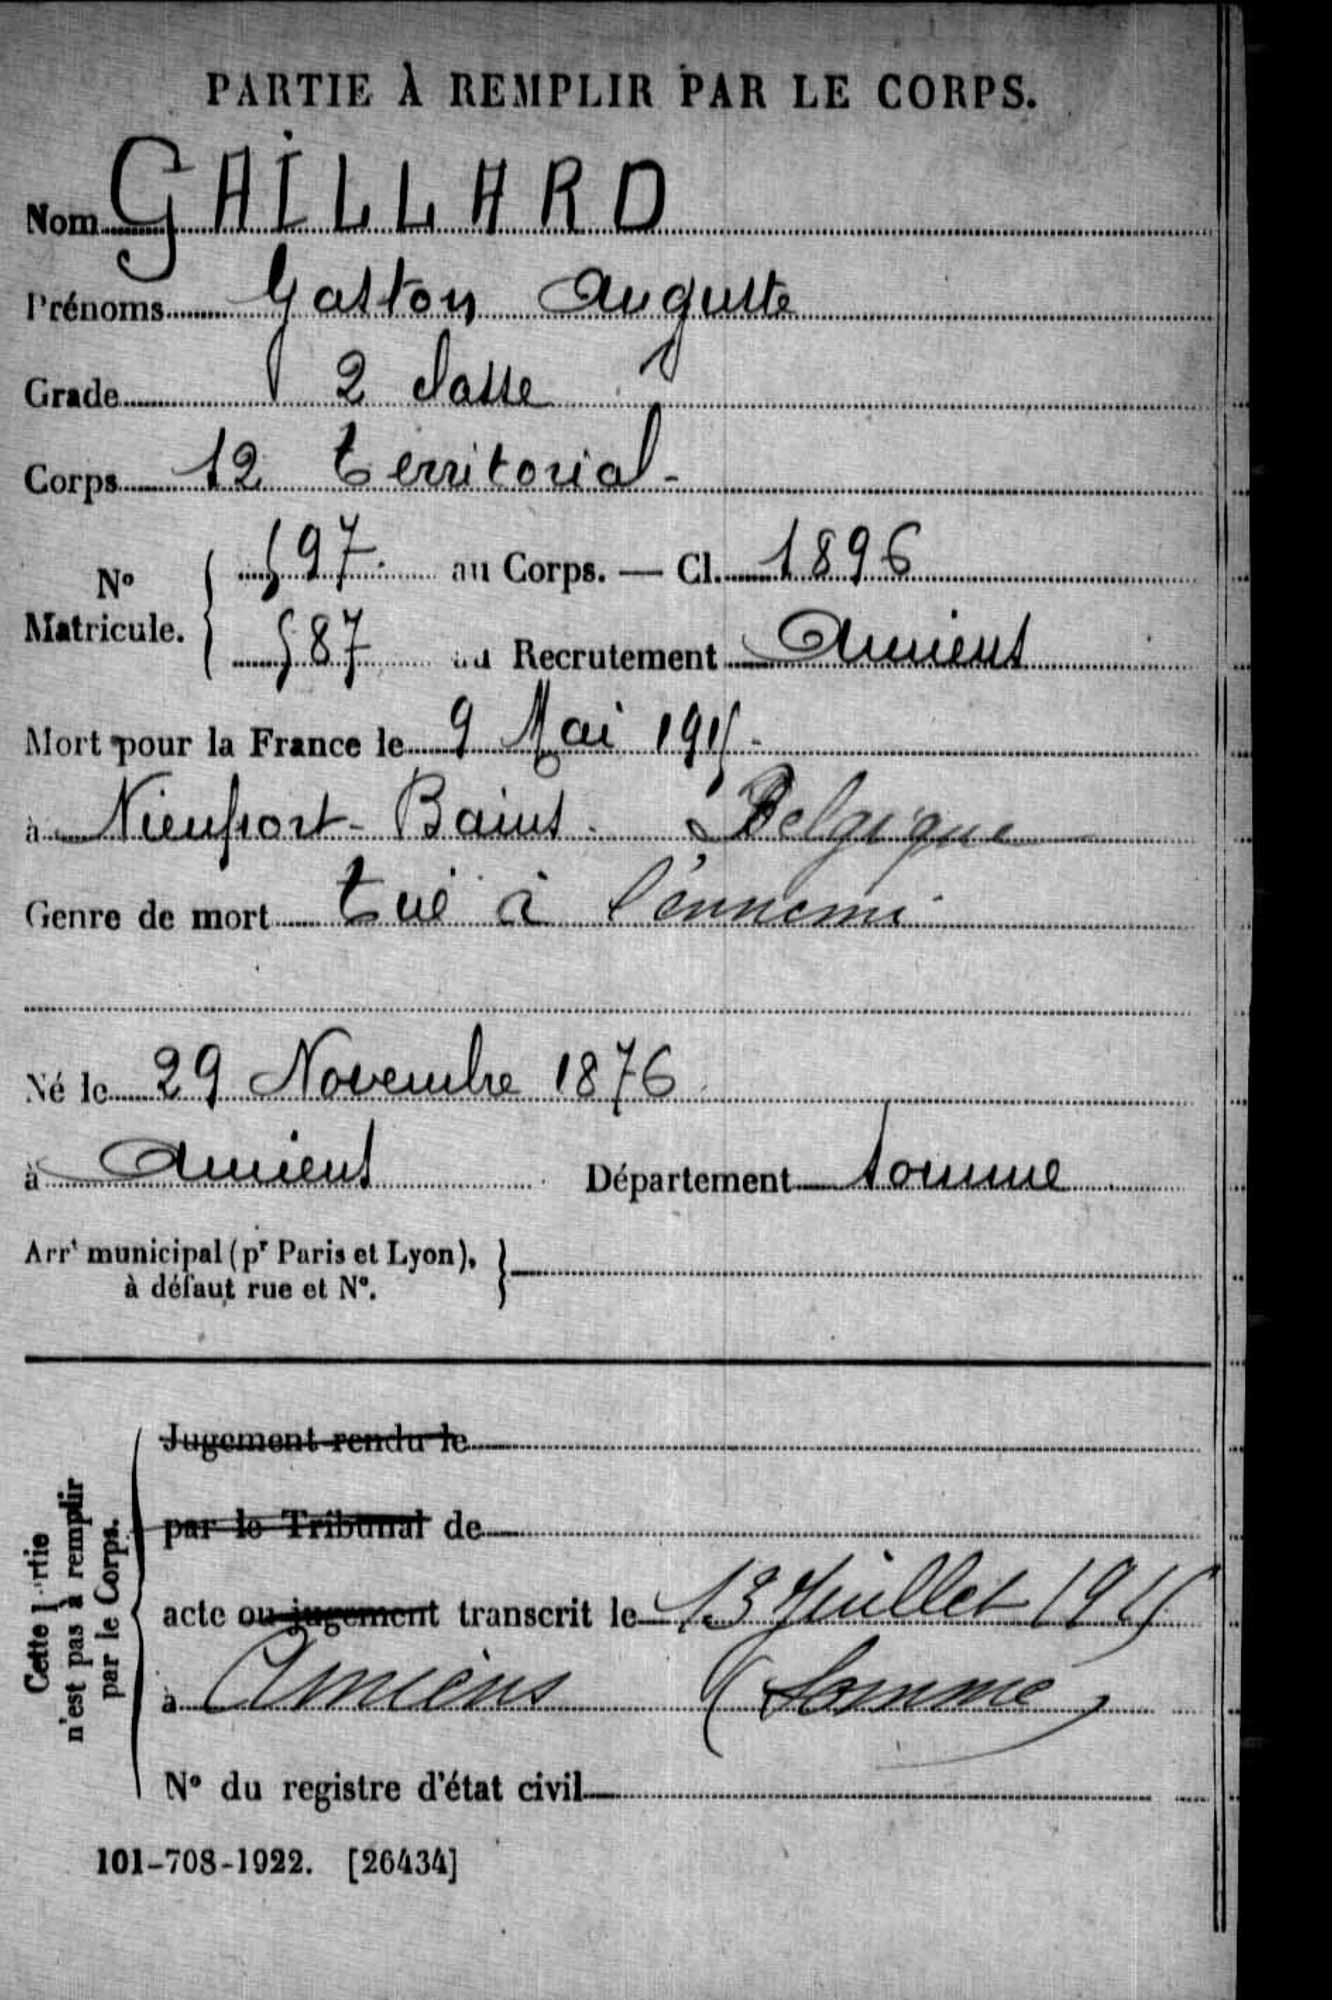 PARTIE À REMPLIR PAR LE CORPS.
Nom GAILLARD
Prénoms Gaston Auguste
Grade 2 classe
Corps 12 territorial
N° Matricule. 597 au Corps. — Cl. 1896
587 au Recrutement Amiens
Mort pour la France le 9 Mai 1915
à Nieuport-Bains. Belgique
Genre de mort tué à l'ennemi
Né le 29 Novembre 1876
à Amiens Département Somme
Arrt municipal (pr Paris et Lyon),
à défaut rue et N°.
Cette partie n'est pas à remplir par le Corps.
Jugement rendu le
par le Tribunal de
acte ou jugement transcrit le 13 Juillet 1915
à Amiens (Somme)
N° du registre d'état civil
101-708-1922. [26434]